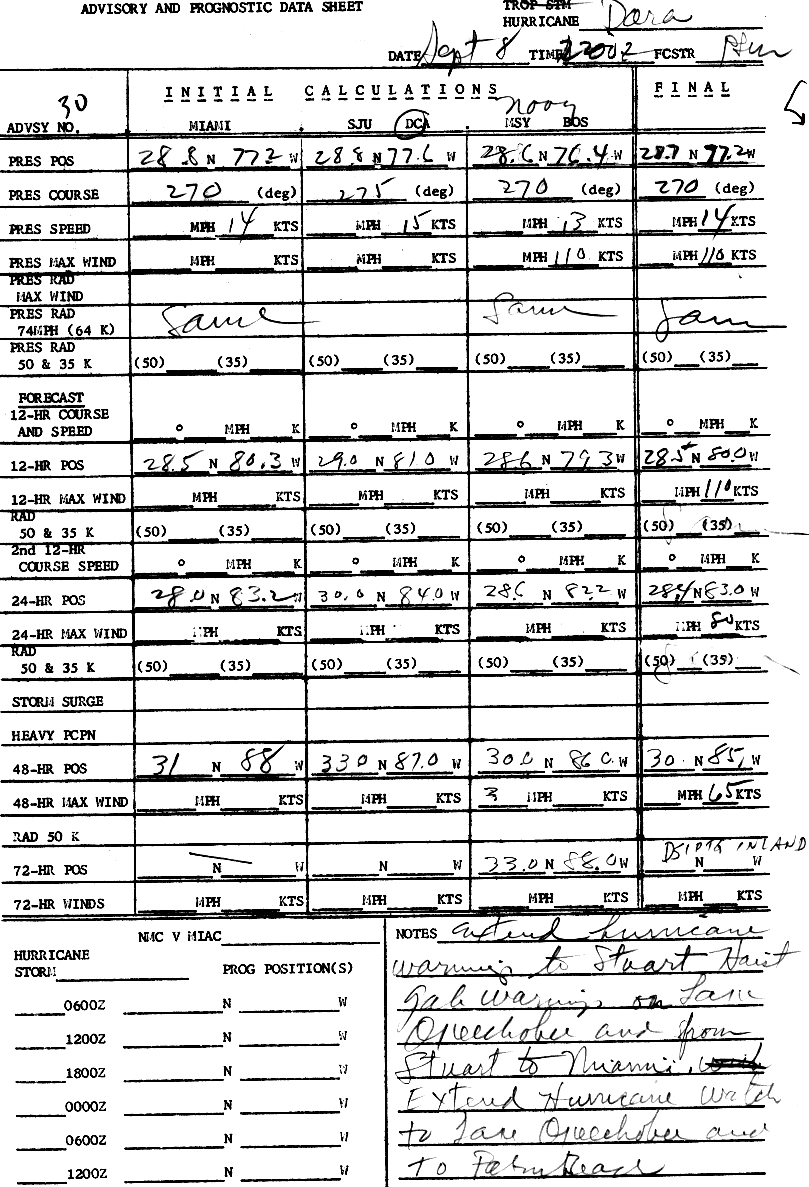 ADVISORY AND PROGNOSTIC DATA SHEET
TROP STM
HURRICANE Dora
DATE Sept 8 TIME 2200Z FCSTR
30 INITIAL CALCULATIONS FINAL
noon
ADVSY NO. MIAMI SJU DCA MSY BOS
PRES POS 28.8 N 77.2 W 28.8 N 77.6 W 28.6 N 76.4 W 28.7 N 77.2 W
PRES COURSE 270 (deg) 275 (deg) 270 (deg) 270 (deg)
PRES SPEED MPH 14 KTS MPH 15 KTS MPH 13 KTS MPH 14 KTS
PRES MAX WIND MPH KTS MPH KTS MPH 110 KTS MPH 110 KTS
PRES RAD
MAX WIND
PRES RAD
74MPH (64 K) Same Same Same
PRES RAD
50 & 35 K (50) (35) (50) (35) (50) (35) (50) (35)
FORECAST
12-HR COURSE
AND SPEED ° MPH K ° MPH K ° MPH K ° MPH K
12-HR POS 28.5 N 80.3 W 29.0 N 81.0 W 28.6 N 79.3 W 28.5 N 80.0 W
12-HR MAX WIND MPH KTS MPH KTS MPH KTS MPH 110 KTS
RAD
50 & 35 K (50) (35) (50) (35) (50) (35) (50) (35)
2nd 12-HR
COURSE SPEED ° MPH K ° MPH K ° MPH K ° MPH K
24-HR POS 28.0 N 83.2 W 30.0 N 84.0 W 28.6 N 82.2 W 28.4 N 83.0 W
24-HR MAX WIND MPH KTS MPH KTS MPH KTS MPH 80 KTS
RAD
50 & 35 K (50) (35) (50) (35) (50) (35) (50) (35)
STORM SURGE
HEAVY PCPN
48-HR POS 31 N 88 W 33.0 N 87.0 W 30.0 N 86.0 W 30. N 85. W
48-HR MAX WIND MPH KTS MPH KTS 3 MPH KTS MPH 65 KTS
RAD 50 K
DSIPTG INLAND
72-HR POS N W N W 33.0 N 88.0 W N W
72-HR WINDS MPH KTS MPH KTS MPH KTS MPH KTS
NMC V MIAC
HURRICANE
STORM PROG POSITION(S)
0600Z N W
1200Z N W
1800Z N W
0000Z N W
0600Z N W
1200Z N W
NOTES Extend hurricane
warnings to Stuart Hoist
gale warnings on Lake
Okeechobee and from
Stuart to Miami.
Extend Hurricane Watch
to Lake Okeechobee and
to Palm Beach